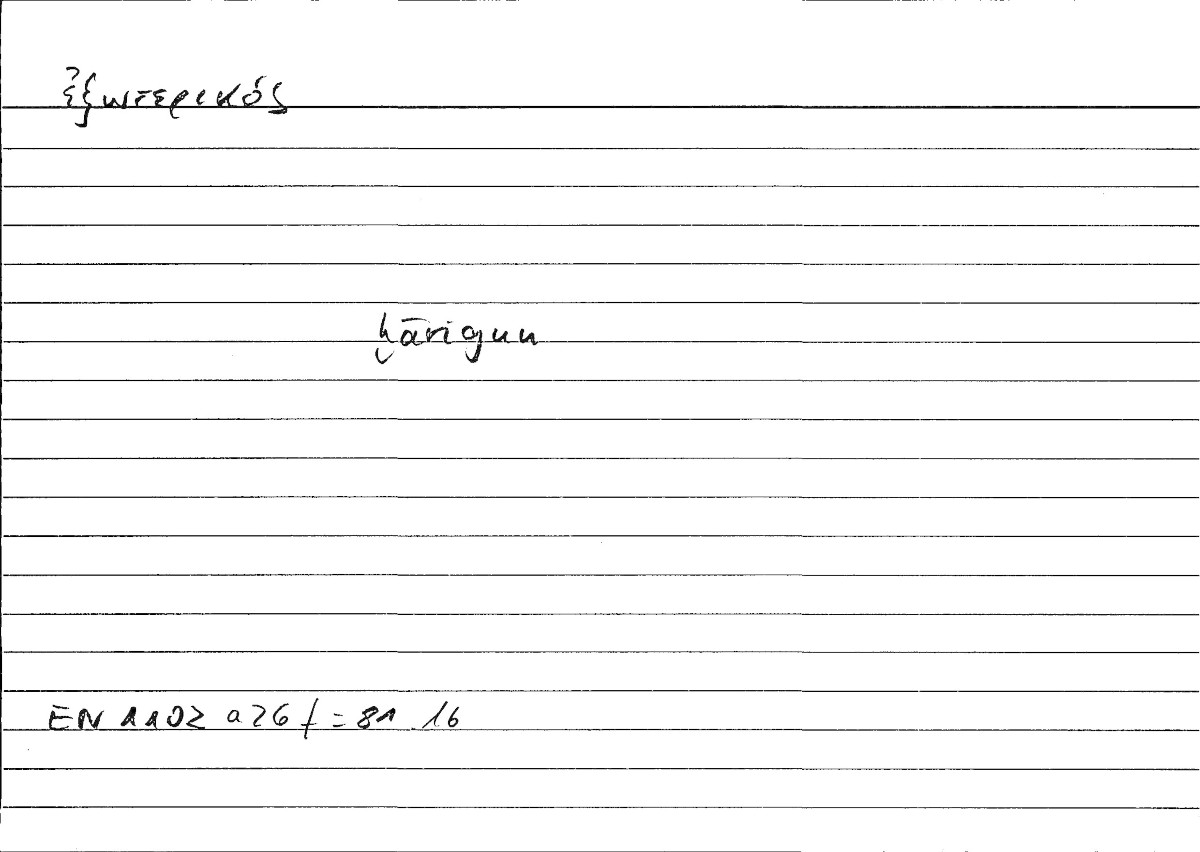 ἐξωτερικός
ḫāriǧun
EN 1102 a26 f = 81 16